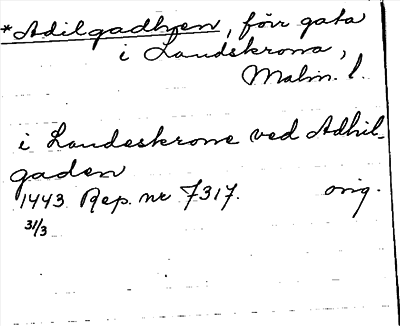 *Adilgadhen, förr gata
i Landskrona,
Malm. l.
i Landeskrone ved Adhil-
gaden
1443 Rep. nr 7317. orig.
31/3